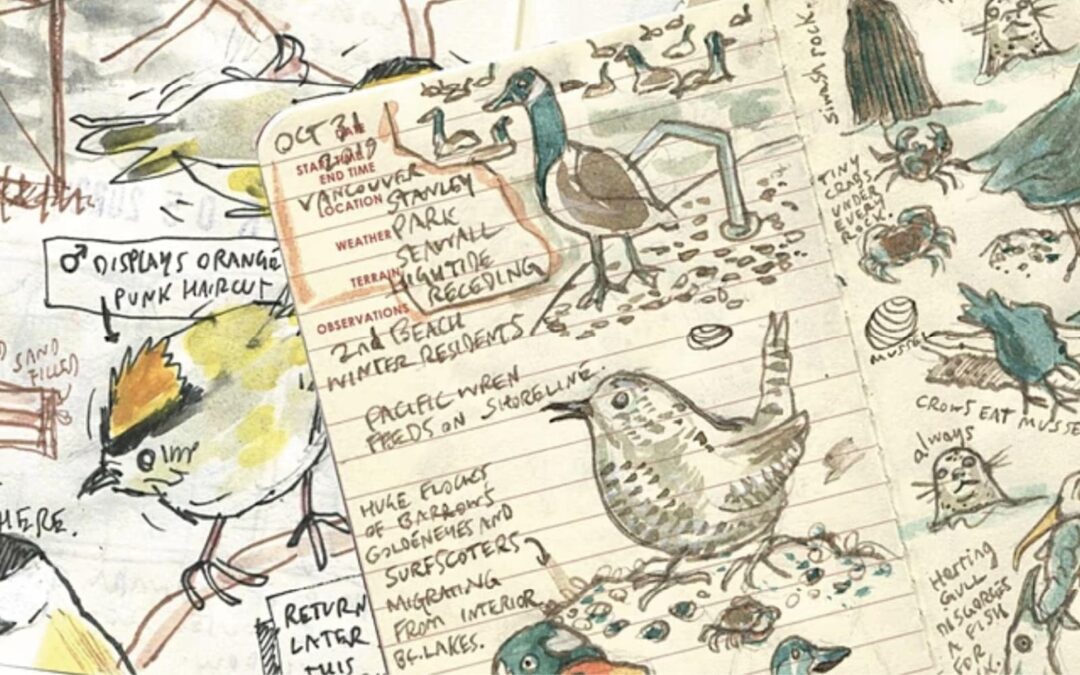 ♂ DISPLAYS ORANGE
PUNK HAIRCUT
SAND
FILLED
HERE.
RETURN
LATER
THIS
OCT 31
DATE
2019
START TIME
END TIME
VANCOUVER
LOCATION
STANLEY
PARK
WEATHER
SEAWALL
HIGH TIDE
TERRAIN
RECEDING
OBSERVATIONS
2nd BEACH
WINTER RESIDENTS
PACIFIC WREN
FEEDS ON SHORELINE.
HUGE FLOCKS
OF BARROWS
GOLDENEYES AND
SURFSCOTERS
MIGRATING
FROM INTERIOR
BC. LAKES.
SIWASH ROCK.
TINY
CRABS
UNDER
EVERY
ROCK.
MUSSEL
CROWS EAT MUSSE
always
Herring
GULL
DISGORGES
A FISH
FOR